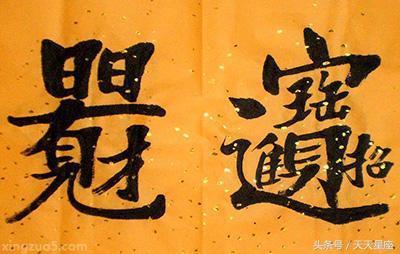 日日有見財
招財進寶
xingzuo5.com
头条号 / 天天星座